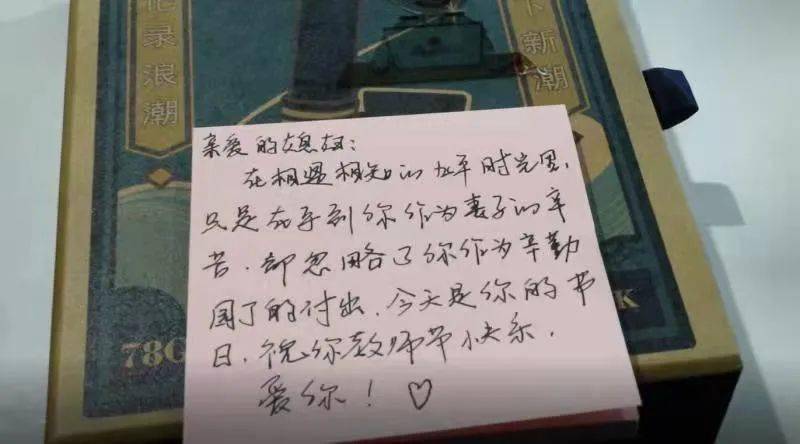 录浪潮
新潮
亲爱的媳妇：
在相遇相知的九年时光里，
只是在乎到你作为妻子的辛
苦，却忽略了你作为辛勤
园丁的付出，今天是你的节
日，祝你教师节快乐，
爱你！♡
78G
K